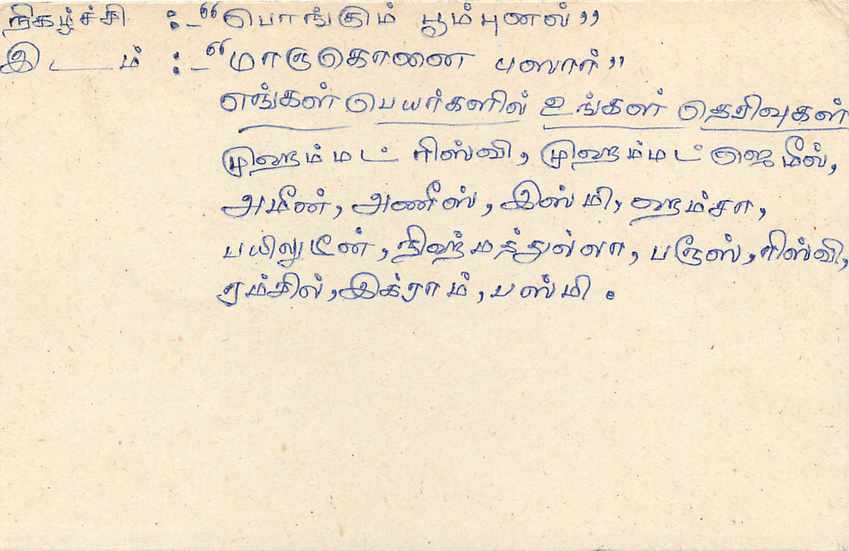 நிகழ்ச்சி :- "பொங்கும் பூம்புனல்"
இடம் :- "மாருகொனை பஸார்"
எங்கள் பெயர்களில் உங்கள் தெரிவுகள்
முஹம்மட் ரிஸ்வி, முஹம்மட் ஜெமீல்,
அமீன், அனீஸ், இஸ்மி, ஹம்சா,
பயிலுடீன், நிஹ்மத்துல்லா, பரூஸ், ரிஸ்வி,
ரம்சில், இக்ராம், பஸ்மி.